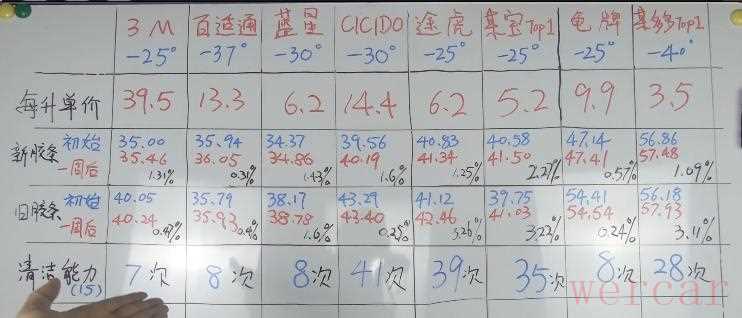 3M 百适通 蓝星 CICIDO 途虎 某宝Top1 龟牌 某多Top1
-25° -37° -30° -30° -25° -25° -25° -40°
每升单价 39.5 13.3 6.2 14.4 6.2 5.2 9.9 3.5
新胶条 初始 35.00 35.94 34.37 39.56 40.83 40.58 47.14 56.86
一周后 35.46 36.05 34.86 40.19 41.34 41.50 47.41 57.48
1.31% 0.31% 1.43% 1.6% 1.25% 2.27% 0.57% 1.09%
旧胶条 初始 40.05 35.79 38.17 43.29 41.12 39.75 54.41 56.18
一周后 40.24 35.93 38.78 43.40 42.46 41.03 54.54 57.93
0.47% 0.4% 1.6% 0.25% 3.26% 3.22% 0.24% 3.11%
清洁能力 7次 8次 8次 41次 39次 35次 8次 28次
(15)
wercar